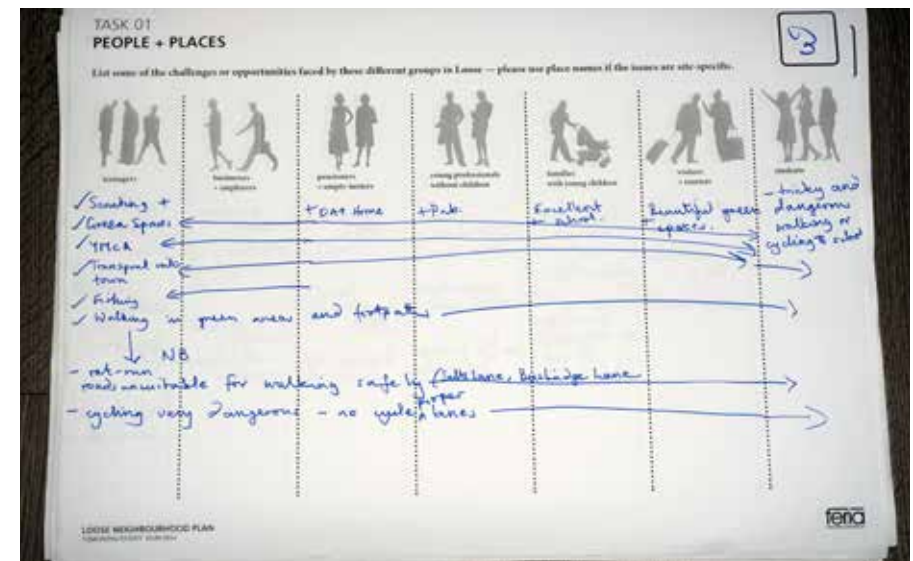 TASK 01
PEOPLE + PLACES
3
List some of the challenges or opportunities faced by these different groups in Loose — please use place names if the issues are site-specific.
teenagers
businesses
+ employers
pensioners
+ empty-nesters
young professionals
without children
families
with young children
visitors
+ tourists
students
✓ Scouting +
✓ Green Spaces
✓ YMCA
✓ Transport into
town
✓ Fishing
✓ Walking in green areas and footpaths
+ OAP Home
+ Pub.
Excellent
+ school.
Beautiful green
spaces.
- tricky and
dangerous
walking or
cycling to school
NB
- rat-run
roads unsuitable for walking safely Lane, Lane
- cycling very dangerous - no proper cycle lanes
LOOSE NEIGHBOURHOOD PLAN
feria